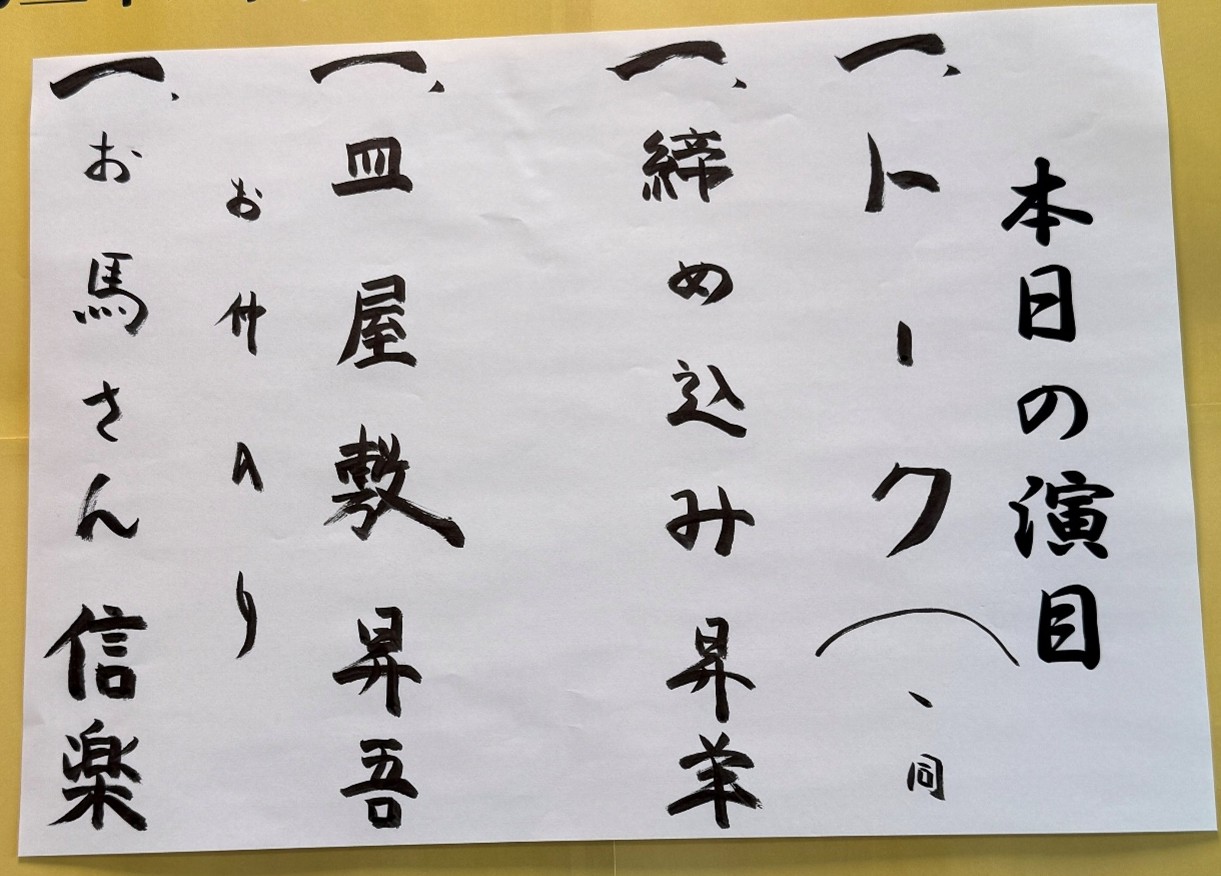 本日の演目
一、トーク(、同
一、締め込み 昇羊
一、皿屋敷 昇吾
お仲入り
一、お馬さん 信楽